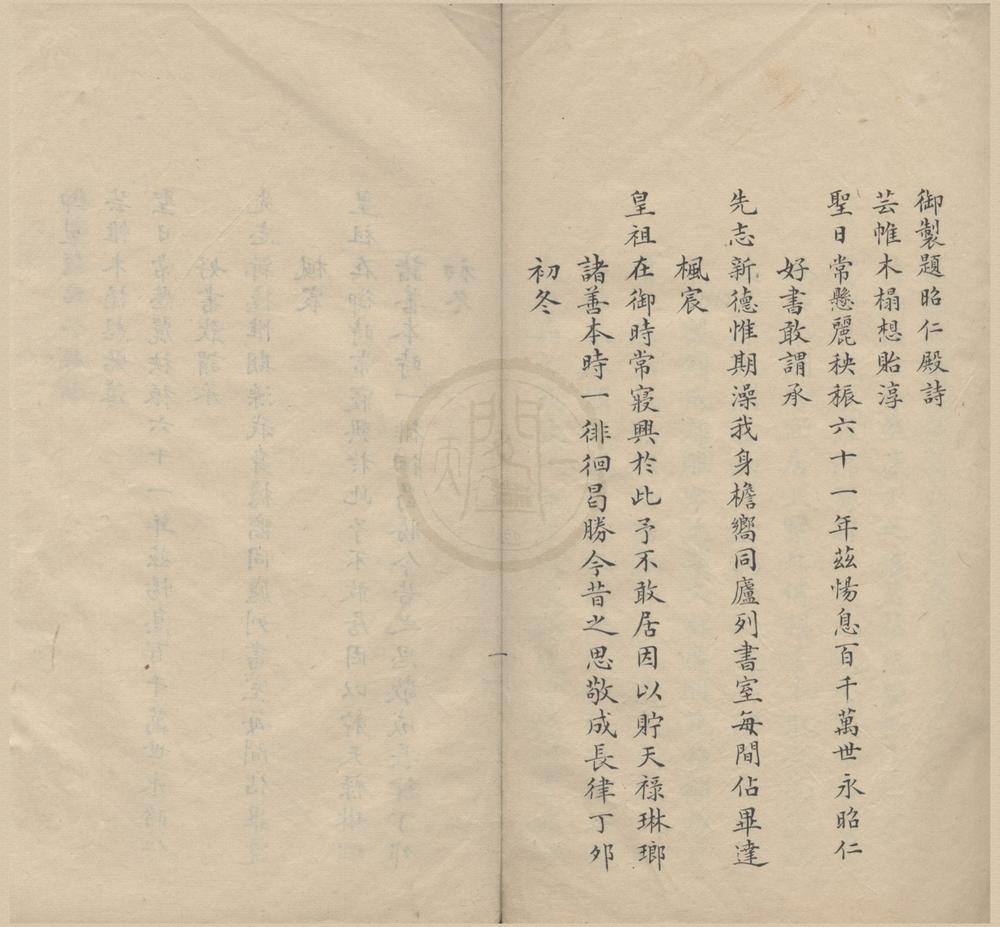 御製題昭仁殿詩
芸帷木榻想貽淳
聖日常懸麗秧䄂六十一年茲惕息百千萬世永昭仁
好書敢謂承
先志新德惟期澡我身檐嚮同廬列書室每閒佔畢達
楓宸
皇祖在御時常寢興於此予不敢居因以貯天祿琳瑯
諸善本時一徘徊曷勝今昔之思敬成長律丁夘
初冬
一